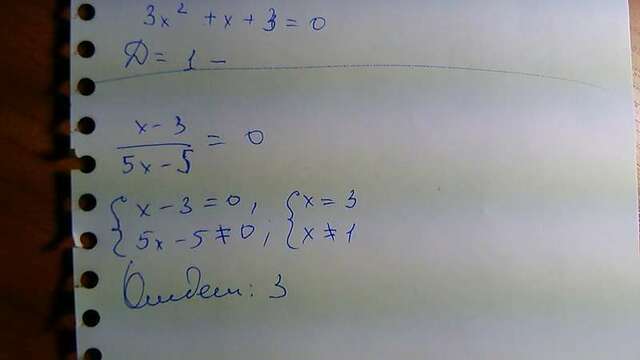 3x² + x + 3 = 0
Д = 1 -
x - 3 / 5x - 5 = 0
{ x - 3 = 0, { x = 3
{ 5x - 5 ≠ 0; { x ≠ 1
Ответ: 3